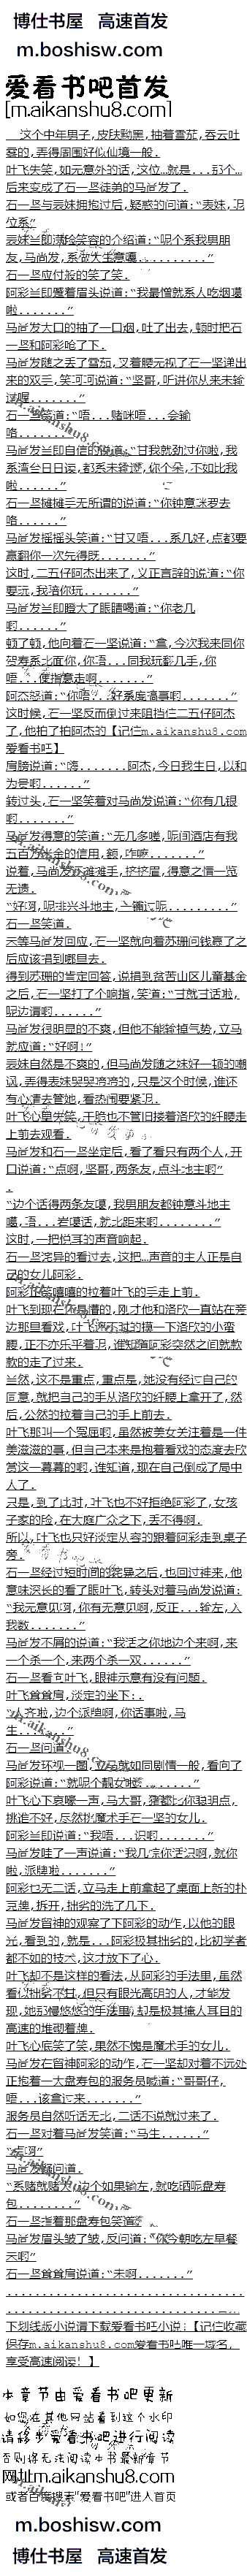 博仕书屋 高速首发
m.boshisw.com
爱看书吧首发
[m.aikanshu8.com]
这个中年男子,皮肤黝黑,抽着雪茄,吞云吐
雾的,弄得周围好似仙境一般.
叶飞失笑,如无意外的话,这位...就是...那个...
后来变成了石一坚徒弟的马尚发了.
石一坚与表妹拥抱过后,疑惑的问道:“表妹,呢
位系”
石一坚应付般的笑了笑.
阿彩立即蹙着眉头说道:“我最憎就系人吃烟噶
啦.......”
马尚发大口的抽了一口烟,吐了出去,顿时把石
一坚和阿彩呛了下.
马尚发随之丢了雪茄,叉着腰无视了石一坚递出
来的双手,笑呵呵说道:“坚哥,听讲你从来未输
过喔.......”
石一坚笑道:“唔...赌咪唔...会输
咯........”
马尚发立即自信的说道:“甘我就劲过你啦,我
啦......”
石一坚摊摊手无所谓的说道:“你钟意咪罗去
咯......”
马尚发摇摇头笑道:“甘又唔...系几好,点都要
赢翻你一次先得既.......”
这时,二五仔阿杰出来了,义正言辞的说道:“你
要玩,我陪你玩.......”
马尚发立即瞪大了眼睛喝道:“你老几
啊......”
顿了顿,他向着石一坚说道:“拿,今次我来同你
贺寿系北面你,你唔...同我玩翻几手,你
这时候,石一坚反而倒过来阻挡住二五仔阿杰
了,他拍了拍阿杰的【记住m.aikanshu8.com
爱看书吧】
肩膀说道:“嗨.......阿杰,今日我生日,以和
为贵啊......”
转过头,石一坚笑着对马尚发说道:“你有几银
啊.......”
马尚发得意的笑道:“无几多喳,呢间酒店有我
说着,马尚发还摊摊手,挤挤眉,得意之情一览
无遗.
石一坚笑道.
未等马尚发回应,石一坚就向着苏珊问钱赢了之
后应该捐到哪里去.
得到苏珊的肯定回答,说捐到贫苦山区儿童基金
之后,石一坚打了个响指,笑道:“甘就甘话啦,
呢边谓啊......”
马尚发很明显的不爽,但他不能输掉气势,立马
就应道:“好啊!”
表妹自然是不爽的,但马尚发随之妹好一顿的嘲
有心情去管她,看热闹要紧呢.
叶飞心里失笑,干脆也不管旧搂着洛欣的纤腰走
上前去观看.
马尚发和石一坚坐定后,看了看只有两个人,开
口说道:“点啊,坚哥,两条友,点斗地主啊”
.
“边个话得两条友噶,我男朋友都钟意斗地主
这时,一把悦耳的声音响起.
石一坚诧异的看过去,这把...声音的主人正是自
己的女儿阿彩.
阿彩正笑嘻嘻的拉着叶飞的手走上前.
叶飞到现在还是懵的,刚才他和洛欣一直站在旁
边那里看戏,叶飞还不时的摸一下洛欣的小蛮
腰,正不亦乐乎着呢,谁知道阿彩突然之间就款
款的走了过来.
当然,这不是重点,重点是,她没有经过自己的
同意,就把自己的手从洛欣的纤腰上拿开了,然
后,公然的拉着自己的手上前去.
叶飞那叫一个冤屈啊,虽然被美女关注着是一件
美滋滋的事,但自己本来是抱着看戏的态度去欣
赏这一幕幕的啊,谁知道,现在自己倒成了局中
人了.
只是,到了此时,叶飞也不好拒绝阿彩了,女孩
子家的脸,在大庭广众之下,丢不得啊.
所以,叶飞也只好淡定从容的跟着阿彩走到桌子
旁.
石一坚经过短时间的诧异之后,也回过神来,他
意味深长的看了眼叶飞,转头对着马尚发说道:
“我无意见啊,你有无意见啊,反正...输左,入
我数.......”
马尚发不屑的说道:“我话之你地边个来啊,来
一个杀一个,来两个杀一双......”
石一坚看向叶飞,眼神示意有没有问题.
叶飞耸耸肩,淡定的坐下:.
“人齐啦,边个派牌啊,你话事啦,马
生......”
石一坚问道.
马尚发环视一圈,立马就如同剧情一般,看向了
阿彩说道:“就呢个靓女啦.......”
叶飞心下哀嚎一声,马大哥,猪都比你聪明点,
挑谁不好,尽然挑魔术手石一坚的女儿.
阿彩立即说道:“我唔...识啊.......”
马尚发哇了一声说道:“我几惊你话识啊,就你
啦,派牌啦.......”
阿彩也无二话,立马走上前拿起了桌面上新的扑
克牌,拆开,拙劣的洗了几下.
马尚发留神的观察了下阿彩的动作,以他的眼
光,看到的,就是...阿彩极其拙劣的,比初学者
都不如的技术,这才放下了心.
叶飞却不是这样的看法,从阿彩的手法里,虽然
看似拙劣不甘,但只有眼光高明的人,才能发
现,她那慢悠悠的手法里,却是极其掩人耳目的
高速的堆砌着牌.
叶飞心底笑了笑,果然不愧是魔术手的女儿.
马尚发在留神阿彩的动作,石一坚却对着不远处
正抱着一大盘寿包的服务员喊道:“哥哥仔,
唔...该拿过来.......”
服务员自然听话无比,二话不说就过来了.
石一坚对着马尚发笑道:“马生......”
“点啊”
马尚发疑问道.
“系赌就赌大,边个如果输左,就吃晒呢盘寿
包........”
石一坚指着那盘寿包笑道.
马尚发眉头皱了皱,反问道:“你今朝吃左早餐
未啊”
石一坚耸耸肩说道:“未啊.......”
下划线版小说请下载爱看书吧小说;【记住收藏
保存m.aikanshu8.com爱看书吧唯一域名,
享受高速阅读!】
本章节由爱看书吧更新
如您在其他网站看到这个水印
请移步爱看书吧进行阅读
否则将无法阅读本书最新章节
网址:m.aikanshu8.com
或者百度搜索"爱看书吧"进入首页
m.boshisw.com
博仕书屋 高速首发